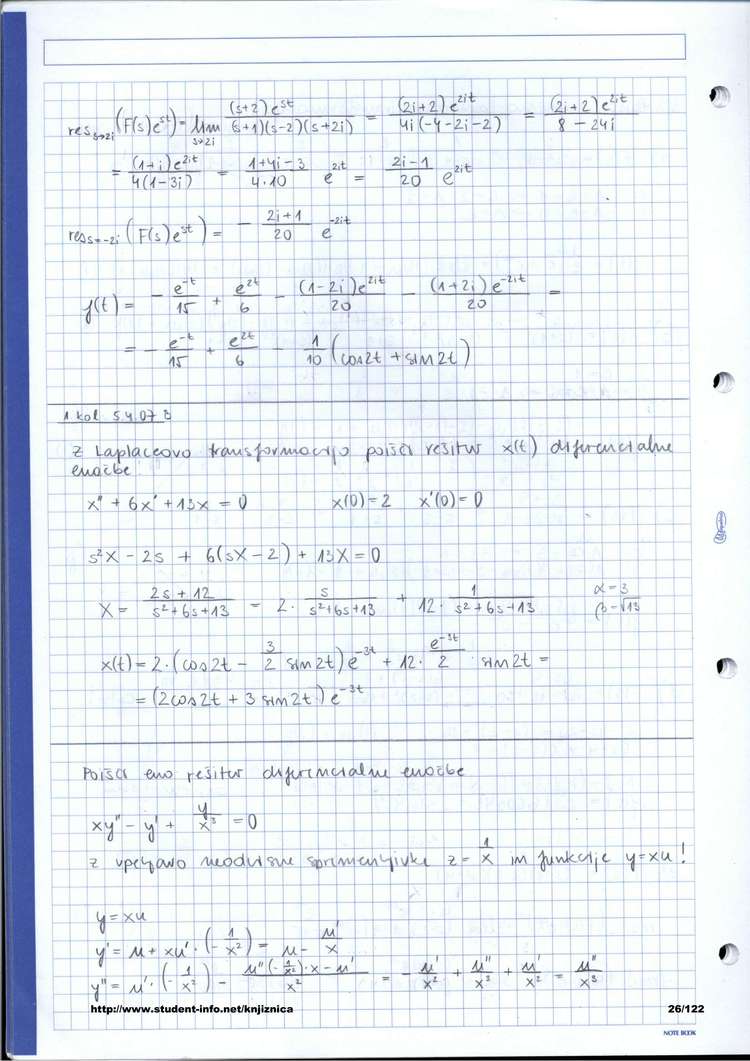 res_{s→2i} (F(s)e^{st}) = lim_{s→2i} (s+2)e^{st} / (s+1)(s-2)(s+2i) = (2i+2)e^{2it} / 4i(-4-2i-2) = (2i+2)e^{2it} / 8-24i
= (1+i)e^{2it} / 4(1-3i) = 1+4i-3 / 4·10 e^{2it} = 2i-1 / 20 e^{2it}
res_{s=-2i} (F(s)e^{st}) = - 2i+1 / 20 e^{-2it}
f(t) = - e^{-t}/15 + e^{2t}/6 - (1-2i)e^{2it} / 20 - (1+2i)e^{-2it} / 20 =
= - e^{-t}/15 + e^{2t}/6 - 1/10 (cos2t + sin2t)
1 kol 5.4.07
Z Laplaceovo transformacijo poišči rešitev x(t) diferencialne
enačbe
x'' + 6x' + 13x = 0 x(0) = 2 x'(0) = 0
s²X - 2s + 6(sX - 2) + 13X = 0
X = 2s + 12 / s²+6s+13 = 2· s / s²+6s+13 + 12· 1 / s²+6s+13 α = 3
β = √13
x(t) = 2·(cos2t - 3/2 sin2t)e^{-3t} + 12· e^{-3t}/2 sin2t =
= (2cos2t + 3sin2t)e^{-3t}
Poišči eno rešitev diferencialne enačbe
xy'' - y' + y/x³ = 0
z vpeljavo neodvisne spremenljivke z = 1/x in funkcije y = xu!
y = xu
y' = u + xu'·(-1/x²) = u - u'/x
y'' = u'·(-1/x²) - u''(-1/x²)·x - u' / x² = - u'/x² + u''/x³ + u'/x² = u''/x³
http://www.student-info.net/knjiznica 26/122
NOTE BOOK